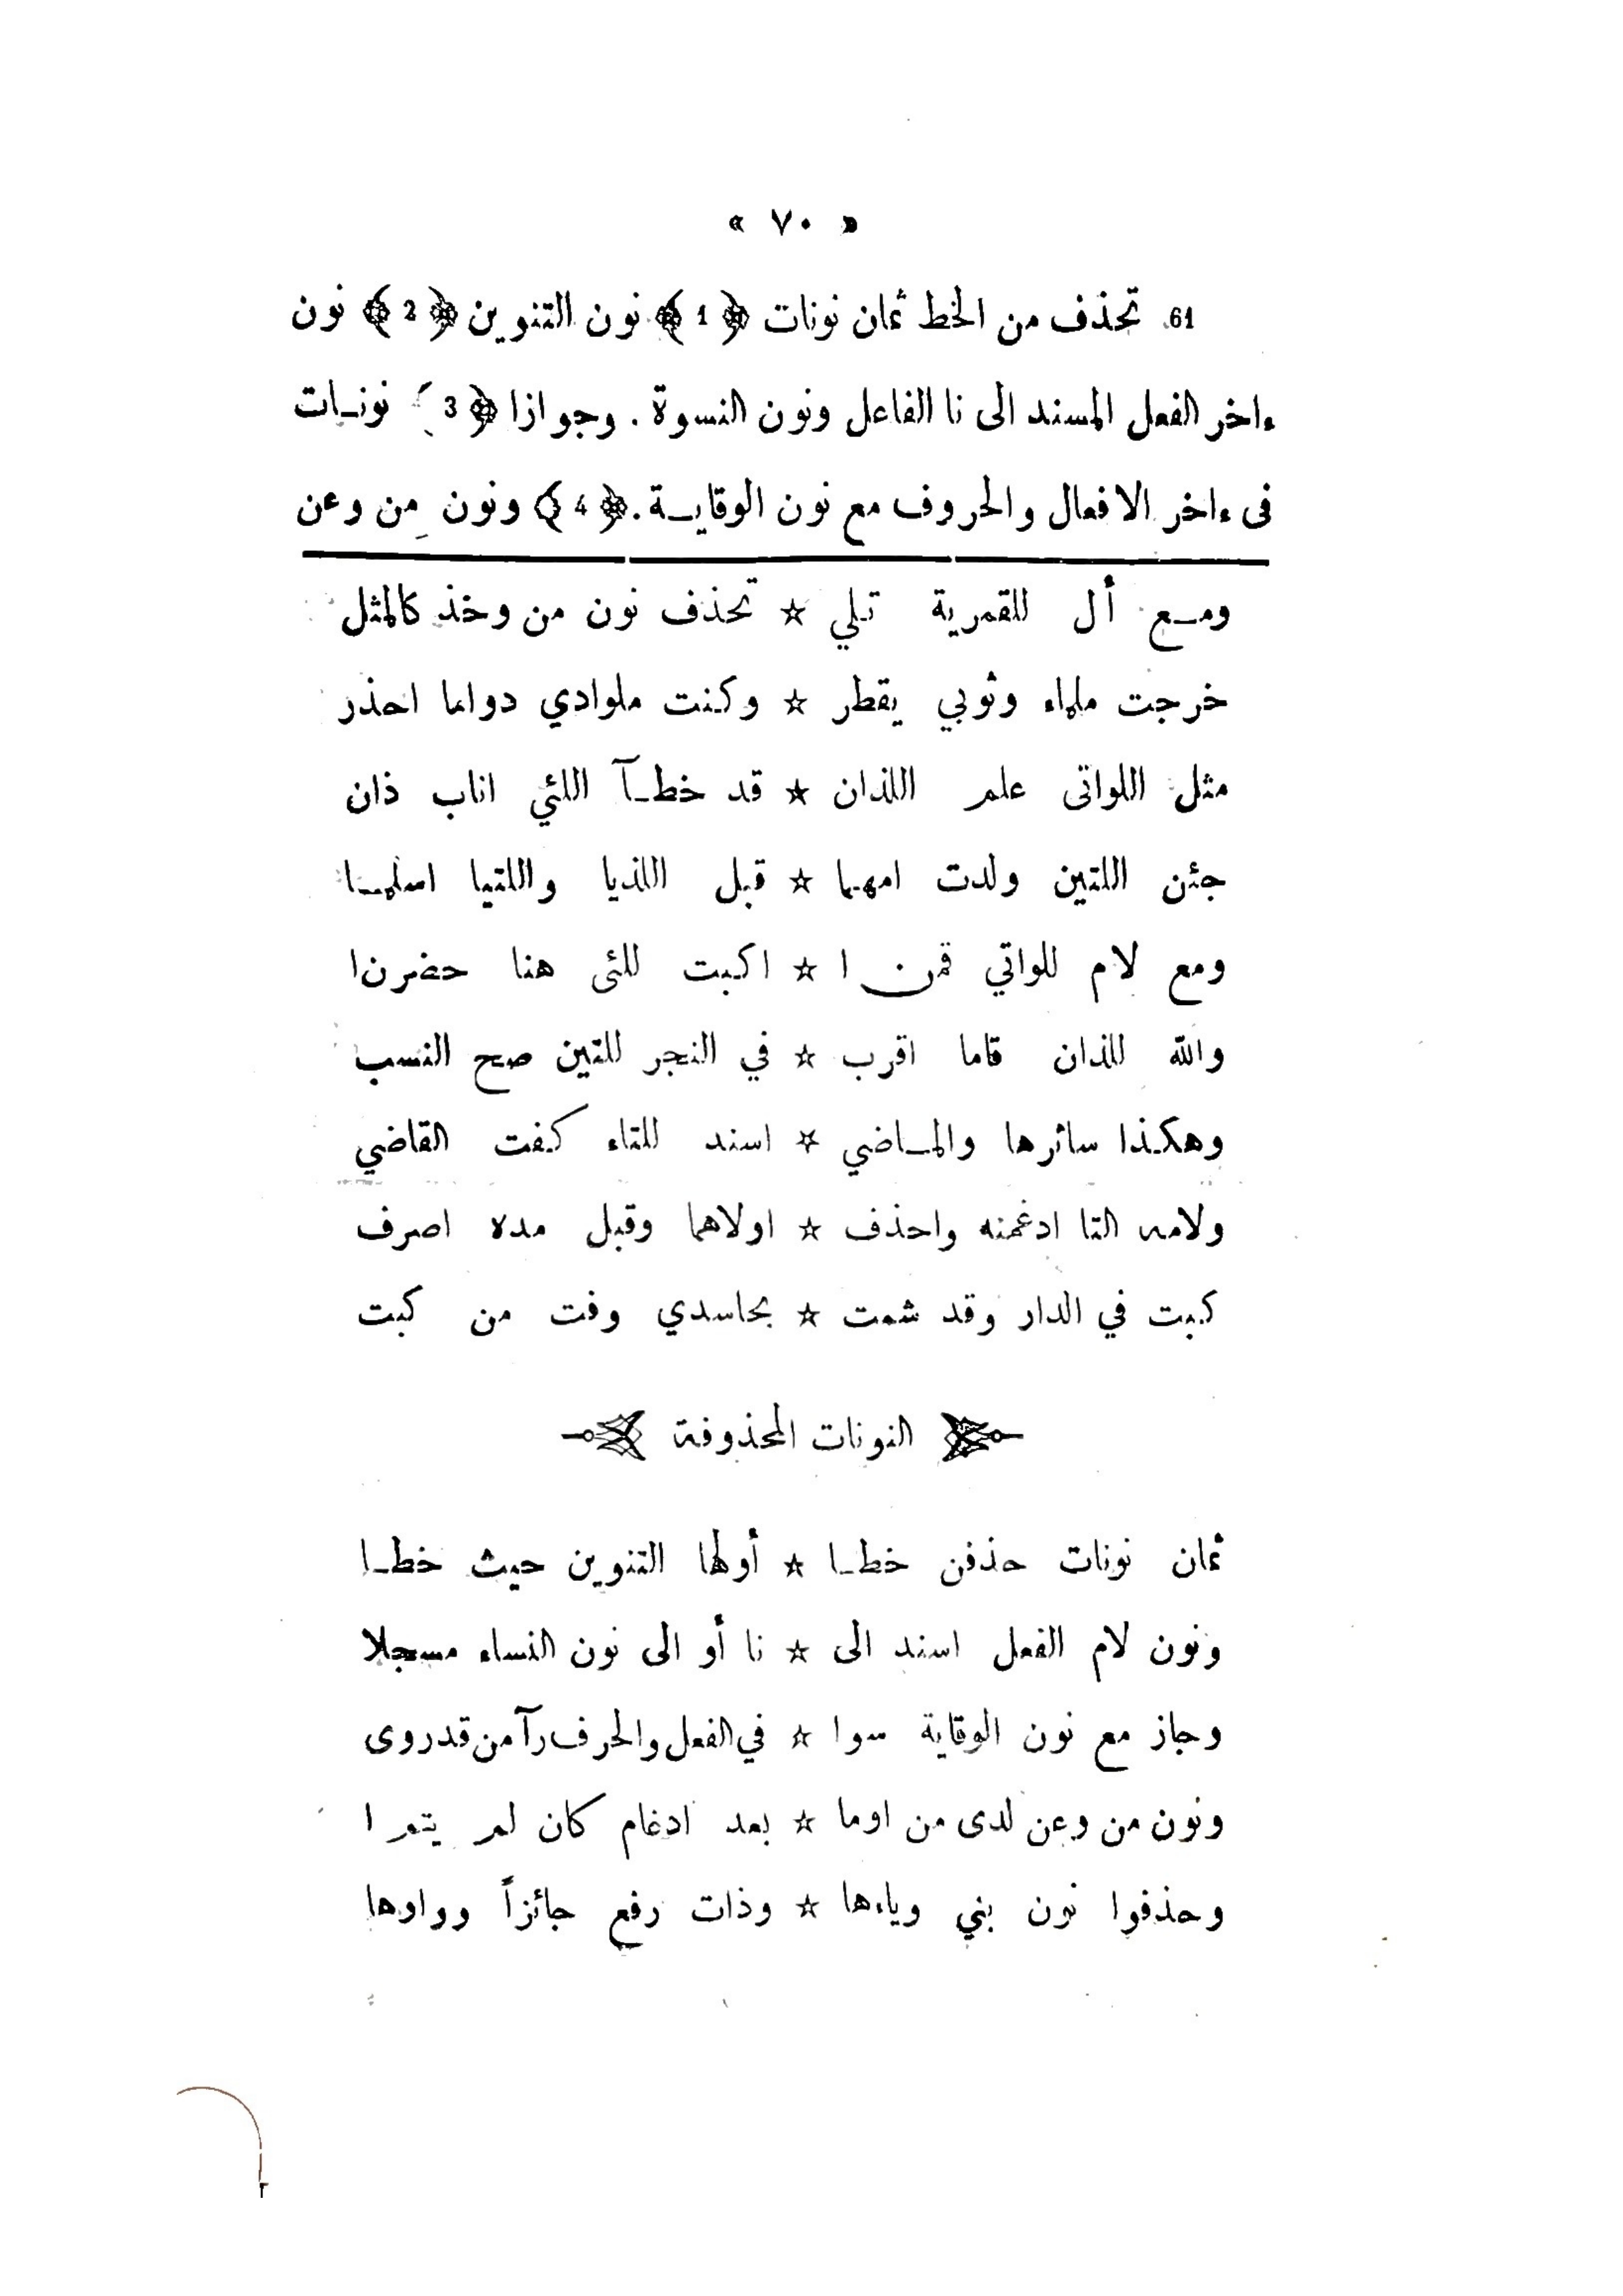 « ٧٠ »
61. تحذف من الخط ثمان نونات ﴿1﴾ نون التنوين ﴿2﴾ نون
ءاخر الفعل المسند الى نا الفاعل ونون النسوة. وجوازا ﴿3﴾ نونـات
فى ءاخر الافعال والحروف مع نون الوقايـة. ﴿4﴾ ونون من وعن
ومـع أل للقمرية تلي ☆ تحذف نون من وخذ كالمثل
خرجت ملماء وثوبي يقطر ☆ وكنت ملوادي دواما احذر
مثل اللواتى علم اللذان ☆ قد خطـآ اللئي اناب ذان
جئن اللتين ولدت امهما ☆ قبل اللذيا واللتيا اسلمـا
ومع لام للواتي قمن ا ☆ اكبت للئى هنا حضرن ا
والله للذان قاما اقرب ☆ في النجر للتين صح النسب
وهكذا سائرها والمـاضي ☆ اسند للتاء كفت القاضي
ولامه التا ادغمنه واحذف ☆ اولاهما وقبل مده اصرف
كبت في الدار وقد شمت ☆ بحاسدي وفت من كبت
النونات المحذوفة
ثمان نونات حذفن خطـا ☆ أولها التنوين حيث خطـا
ونون لام الفعل اسند الى ☆ نا أو الى نون النساء مسجلا
وجاز مع نون الوقاية سوا ☆ في الفعل والحرف رآ من قد روى
ونون من وعن لدى من اوما ☆ بعد ادغام كان لم يتم ا
وحذفوا نون بني وياءها ☆ وذات رفع جائزاً وواوها